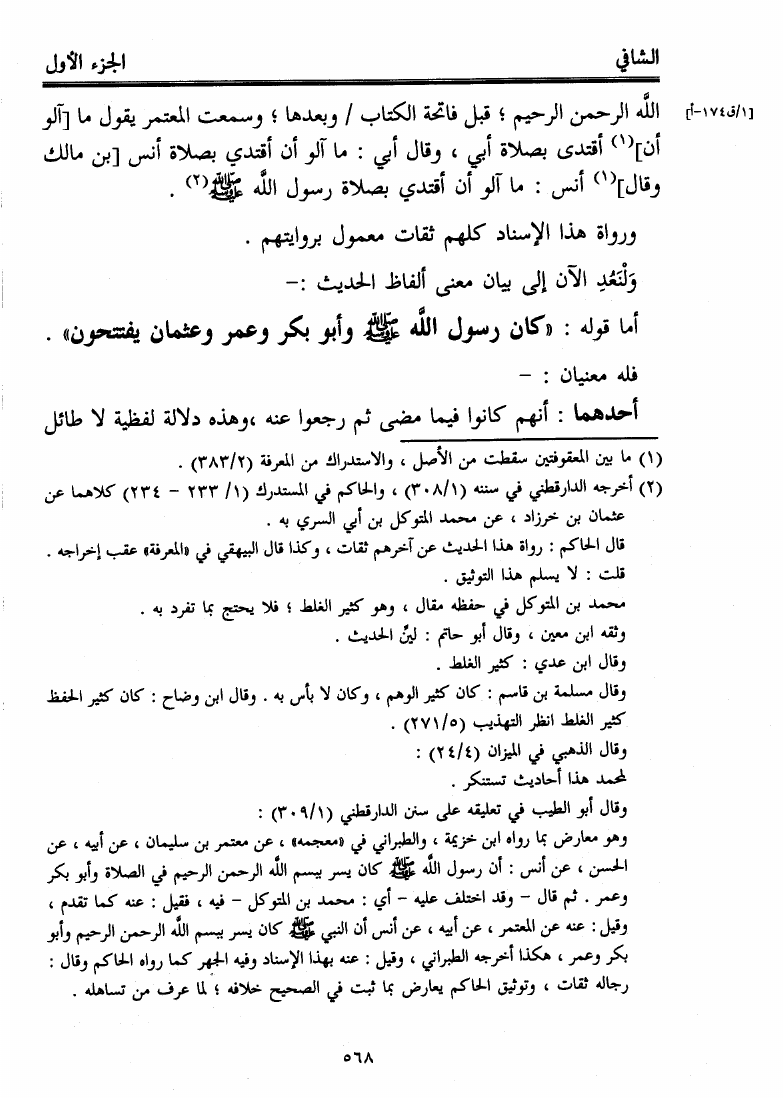 الشافي
الجزء الأول
[١/ق١٧٤-أ]
اللَّه الرحمن الرحيم ؛ قبل فاتحة الكتاب / وبعدها ؛ وسمعت المعتمر يقول ما [آلو
أن](١) أقتدى بصلاة أبي ، وقال أبي : ما آلو أن أقتدي بصلاة أنس [بن مالك
وقال](١) أنس : ما آلو أن أقتدي بصلاة رسول اللَّه ﷺ(٢) .
ورواة هذا الإسناد كلهم ثقات معمول بروايتهم .
وَلْنَعُدِ الآن إلى بيان معنى ألفاظ الحديث :-
أما قوله : «كان رسول اللَّه ﷺ وأبو بكر وعمر وعثمان يفتتحون» .
فله معنيان : -
أحدهما : أنهم كانوا فيما مضى ثم رجعوا عنه ،وهذه دلالة لفظية لا طائل
(١) ما بين المعقوفتين سقطت من الأصل ، والاستدراك من المعرفة (٣٨٣/٢) .
(٢) أخرجه الدارقطني في سننه (٣٠٨/١) ، والحاكم في المستدرك (١/ ٢٣٣ - ٢٣٤) كلاهما عن
عثمان بن خرزاد ، عن محمد المتوكل بن أبي السري به .
قال الحاكم : رواة هذا الحديث عن آخرهم ثقات ، وكذا قال البيهقي في «المعرفة» عقب إخراجه .
قلت : لا يسلم هذا التوثيق .
محمد بن المتوكل في حفظه مقال ، وهو كثير الغلط ؛ فلا يحتج بما تفرد به .
وثقه ابن معين ، وقال أبو حاتم : ليِّن الحديث .
وقال ابن عدي : كثير الغلط .
وقال مسلمة بن قاسم : كان كثير الوهم ، وكان لا بأس به . وقال ابن وضاح : كان كثير الحفظ
كثير الغلط انظر التهذيب (٢٧١/٥) .
وقال الذهبي في الميزان (٢٤/٤) :
لمحمد هذا أحاديث تستنكر .
وقال أبو الطيب في تعليقه على سنن الدارقطني (٣٠٩/١) :
وهو معارض بما رواه ابن خزيمة ، والطبراني في «معجمه» ، عن معتمر بن سليمان ، عن أبيه ، عن
الحسن ، عن أنس : أن رسول اللَّه ﷺ كان يسر ببسم اللَّه الرحمن الرحيم في الصلاة وأبو بكر
وعمر . ثم قال - وقد اختلف عليه - أي : محمد بن المتوكل - فيه ، فقيل : عنه كما تقدم ،
وقيل : عنه عن المعتمر ، عن أبيه ، عن أنس أن النبي ﷺ كان يسر ببسم اللَّه الرحمن الرحيم وأبو
بكر وعمر ، هكذا أخرجه الطبراني ، وقيل : عنه بهذا الإسناد وفيه الجهر كما رواه الحاكم وقال :
رجاله ثقات ، وتوثيق الحاكم يعارض بما ثبت في الصحيح خلافه ؛ لما عرف من تساهله .
٥٦٨